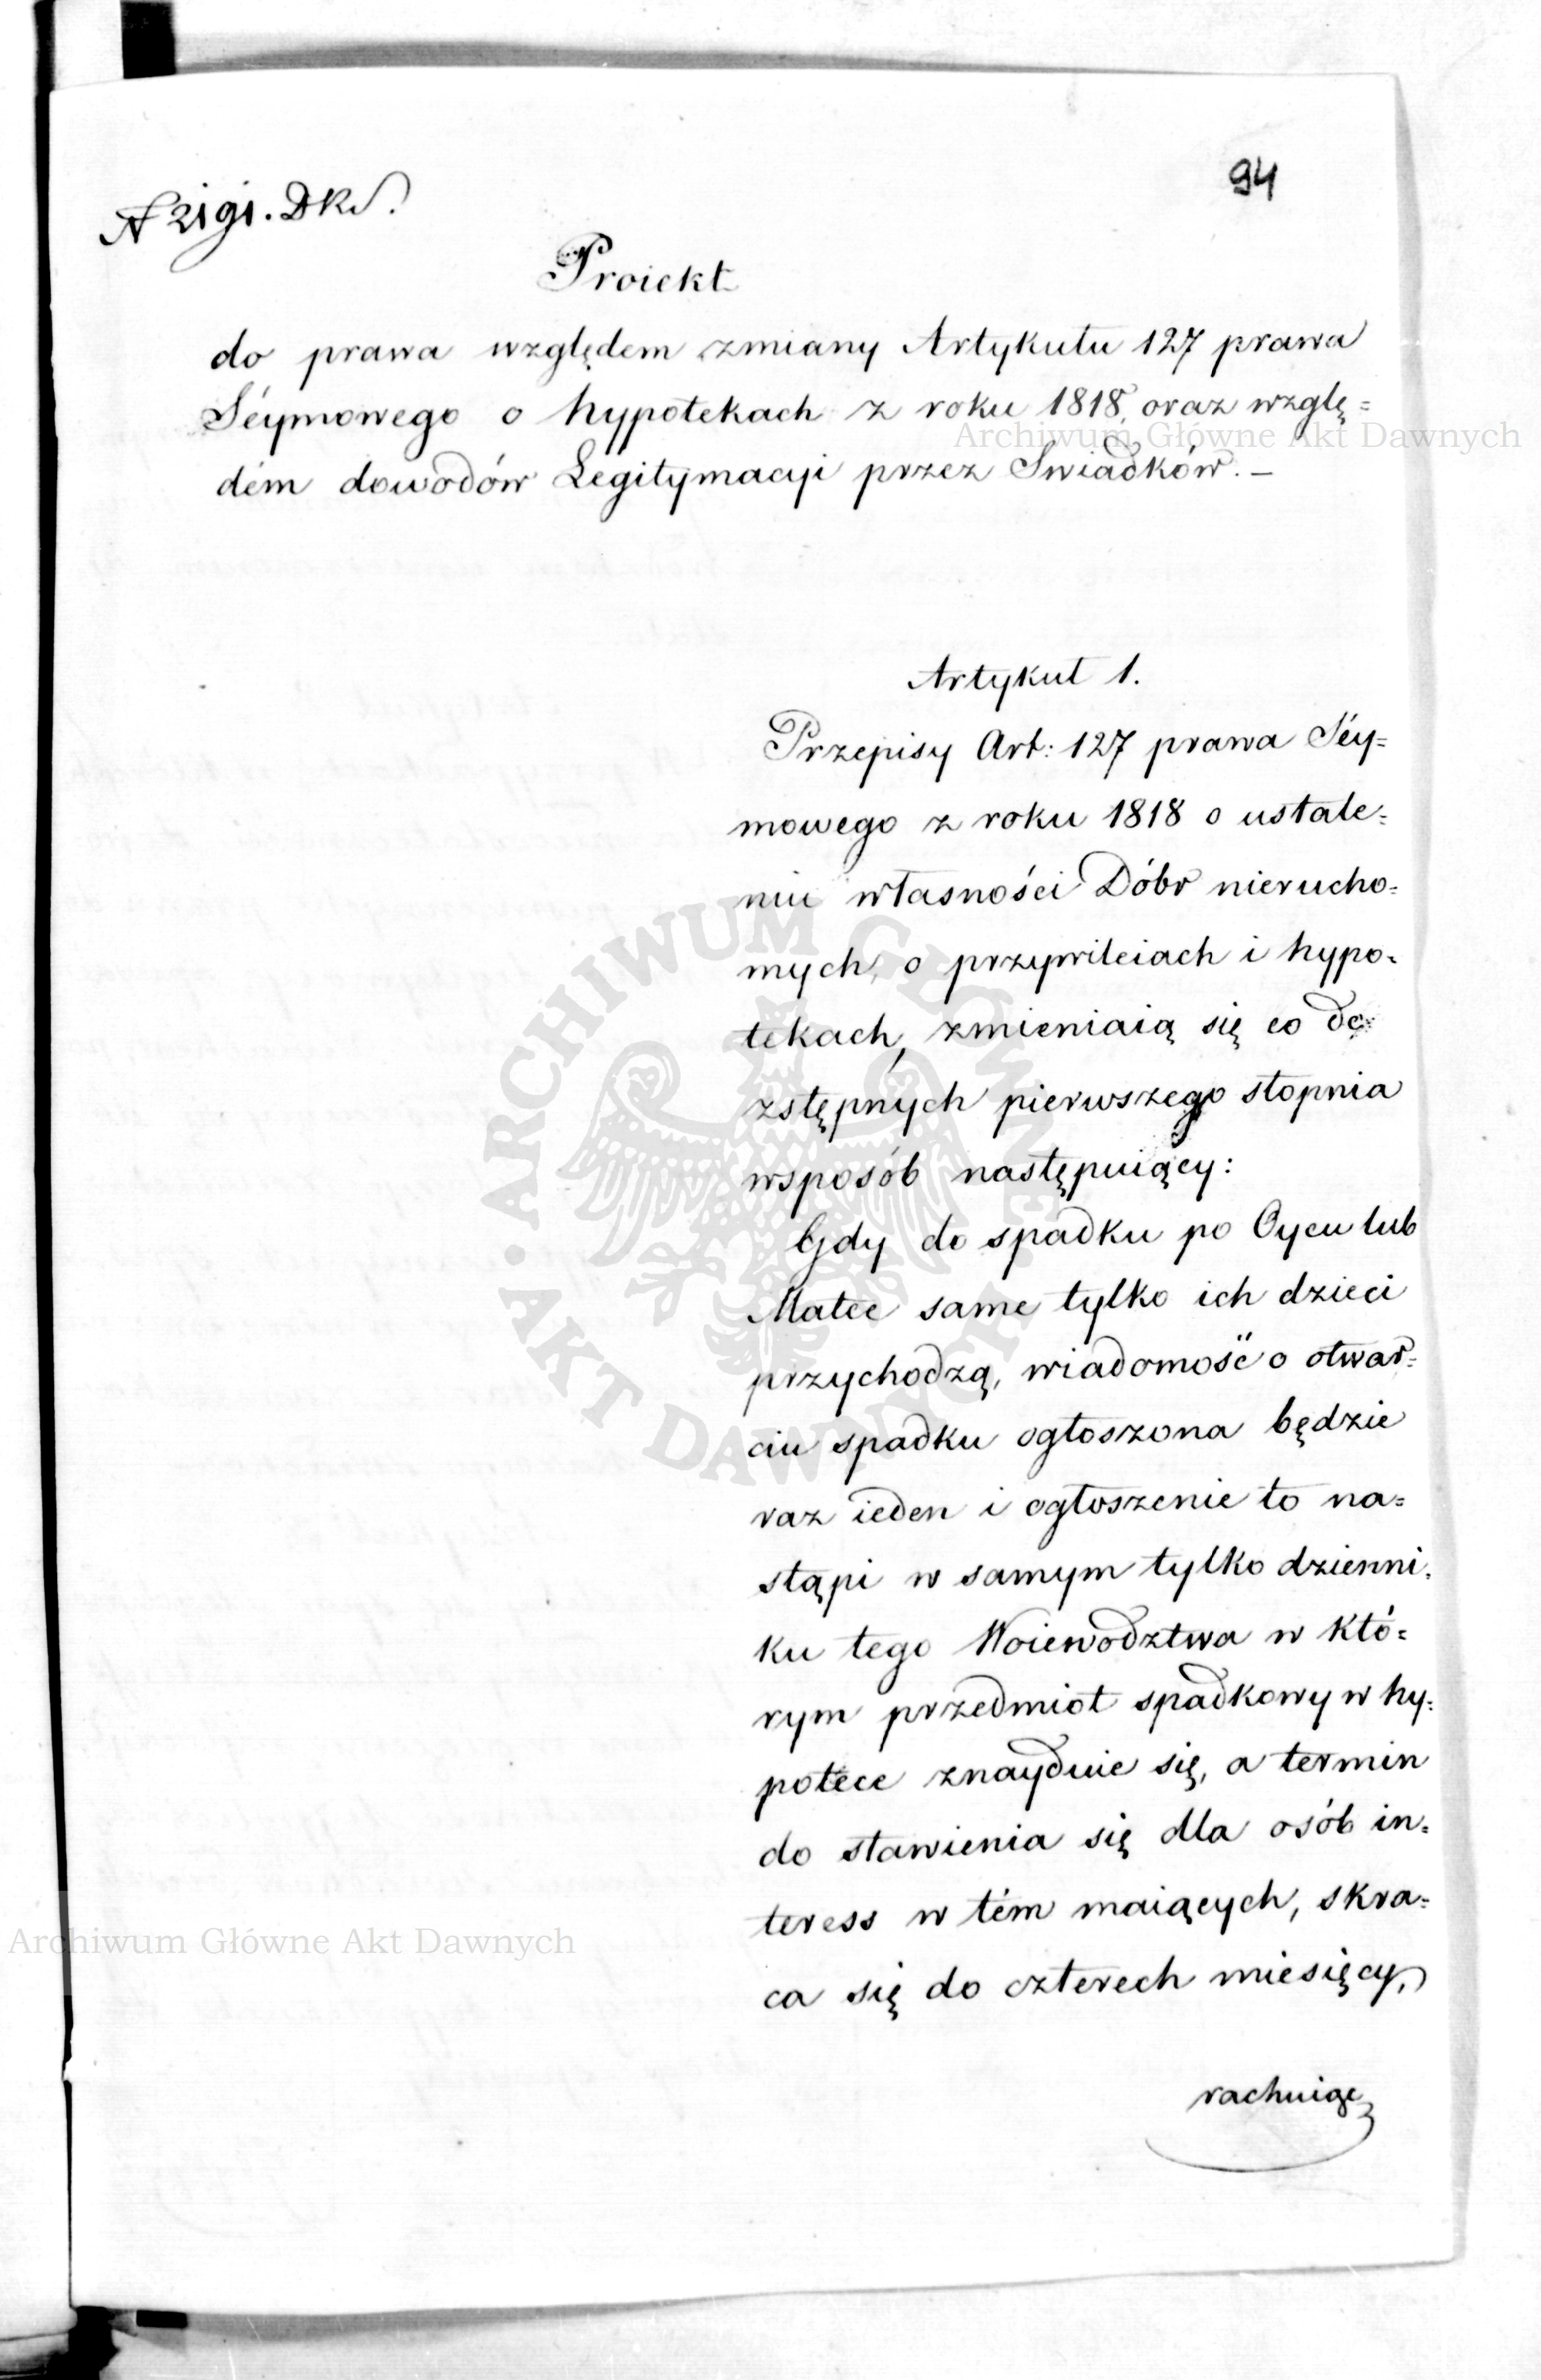 94
N 2191. DKS.
Proiekt
do prawa względem zmiany Artykułu 127 prawa
Séymowego o hypotekach z roku 1818, oraz wzglę=
dém dowodów Legitymacyi przez Swiadków. –
Artykuł 1.
Przepisy Art: 127 prawa Séy=
mowego z roku 1818 o ustale=
niu własności Dóbr nierucho=
mych, o przywileiach i hypo=
tekach, zmieniaią się co do
zstępnych pierwszego stopnia
wsposób następuiący:
Gdy do spadku po Oycu lub
Matce same tylko ich dzieci
przychodzą, wiadomość o otwar=
ciu spadku ogłoszona będzie
raz ieden i ogłoszenie to na=
stąpi w samym tylko dzienni=
ku tego Woiewodztwa w któ=
rym przedmiot spadkowy w hy=
potece znayduie się, a termin
do stawienia się dla osób in=
teress w tém maiących, skra=
ca się do czterech miesięcy,
rachuiąc
Archiwum Główne Akt Dawnych
ARCHIWUM GŁÓWNE AKT DAWNYCH
Archiwum Główne Akt Dawnych